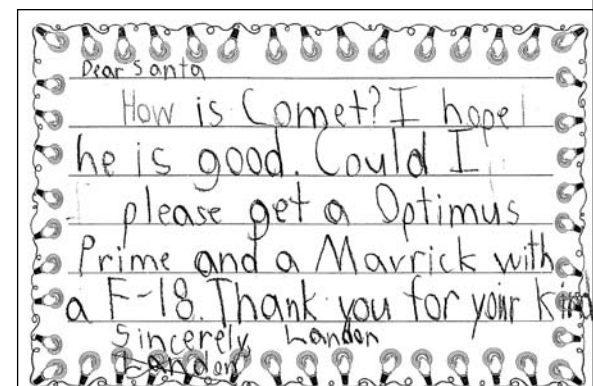 Dear Santa
How is Comet? I hope
he is good. Could I
please get a Optimus
Prime and a Mavrick with
a F-18. Thank you for your kind
Sincerely Landon
Landon